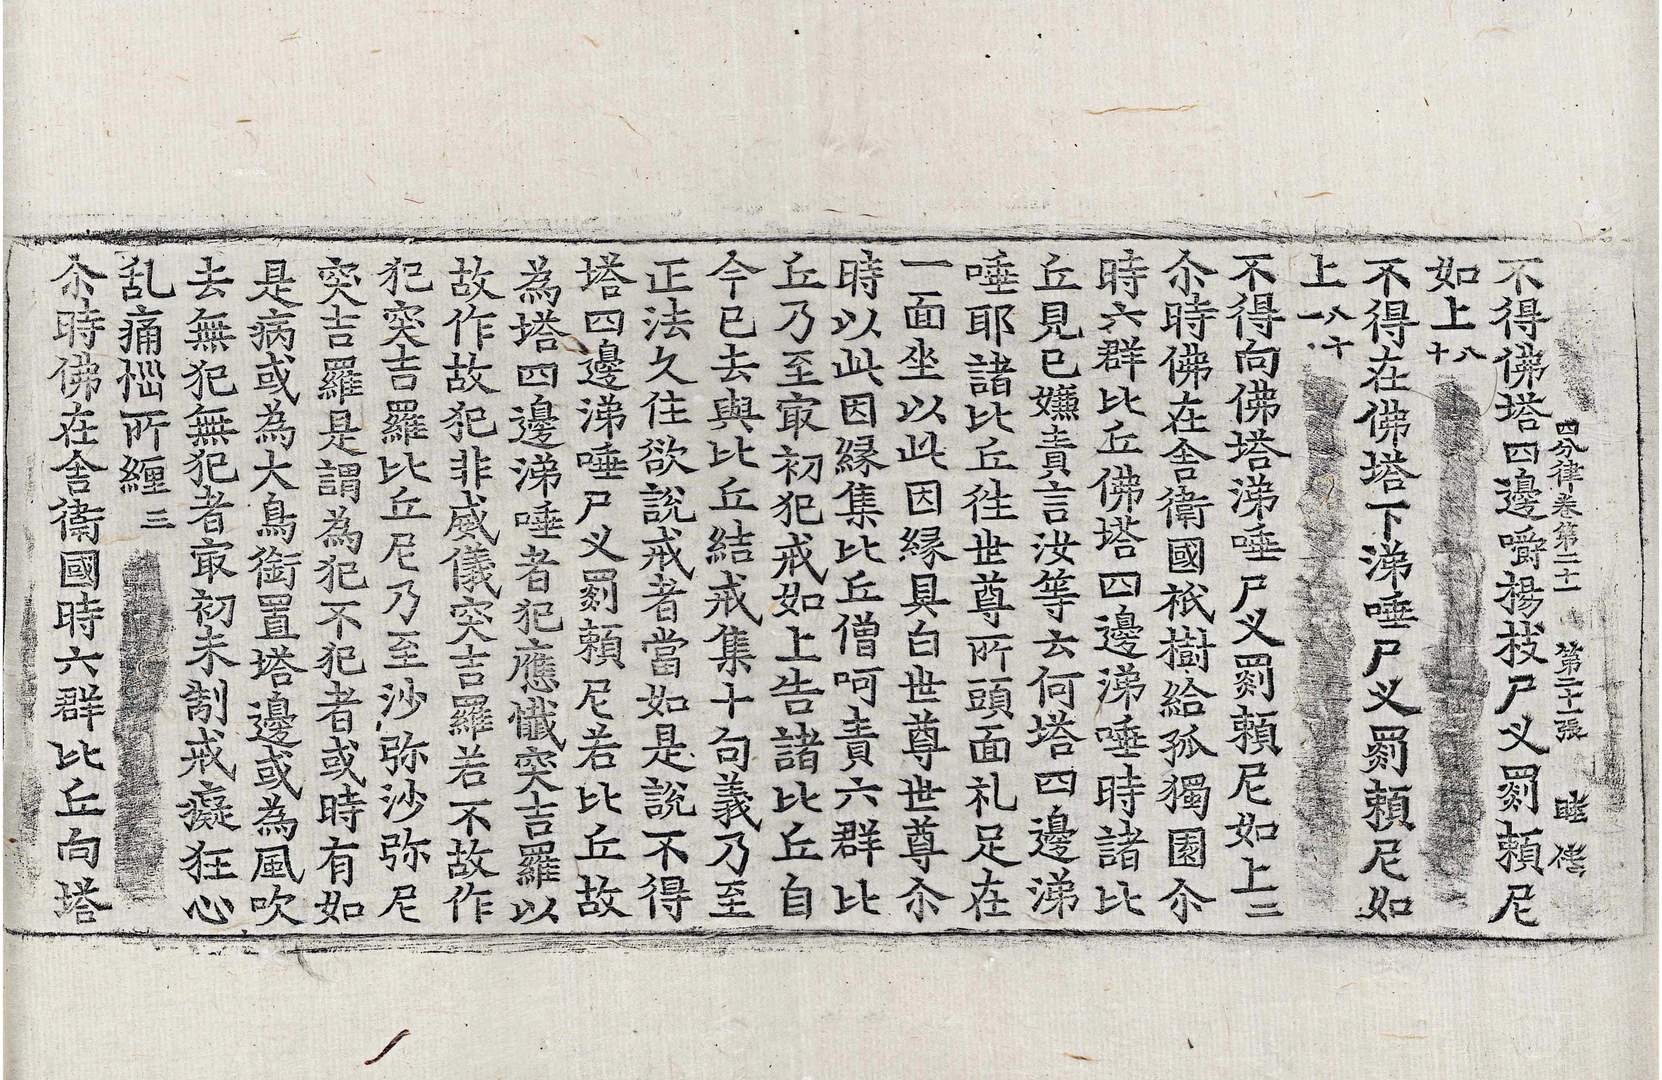 四分律卷第二十一 第二十張
不得佛塔四邊嚼楊枝尸叉罽頼尼
如上 八十
不得在佛塔下涕唾尸叉罽頼尼如
上 八十一
不得向佛塔涕唾尸叉罽頼尼如上二
尒時佛在舍衛國祇樹給孤獨園尒
時六群比丘佛塔四邊涕唾時諸比
丘見已嫌責言汝等云何塔四邊涕
唾耶諸比丘徃世尊所頭面礼足在
一面坐以此因縁具白世尊世尊尒
時以此因縁集比丘僧呵責六群比
丘乃至㝡初犯戒如上告諸比丘自
今已去與比丘結戒集十句義乃至
正法久住欲說戒者當如是說不得
塔四邊涕唾尸叉罽頼尼若比丘故
為塔四邊涕唾者犯應懺突吉羅以
故作故犯非威儀突吉羅若不故作
犯突吉羅比丘尼乃至沙弥沙弥尼
突吉羅是謂為犯不犯者或時有如
是病或為大鳥銜置塔邊或為風吹
去無犯無犯者㝡初未制戒癡狂心
乱痛惱所纒 三
尒時佛在舍衛國時六群比丘向塔